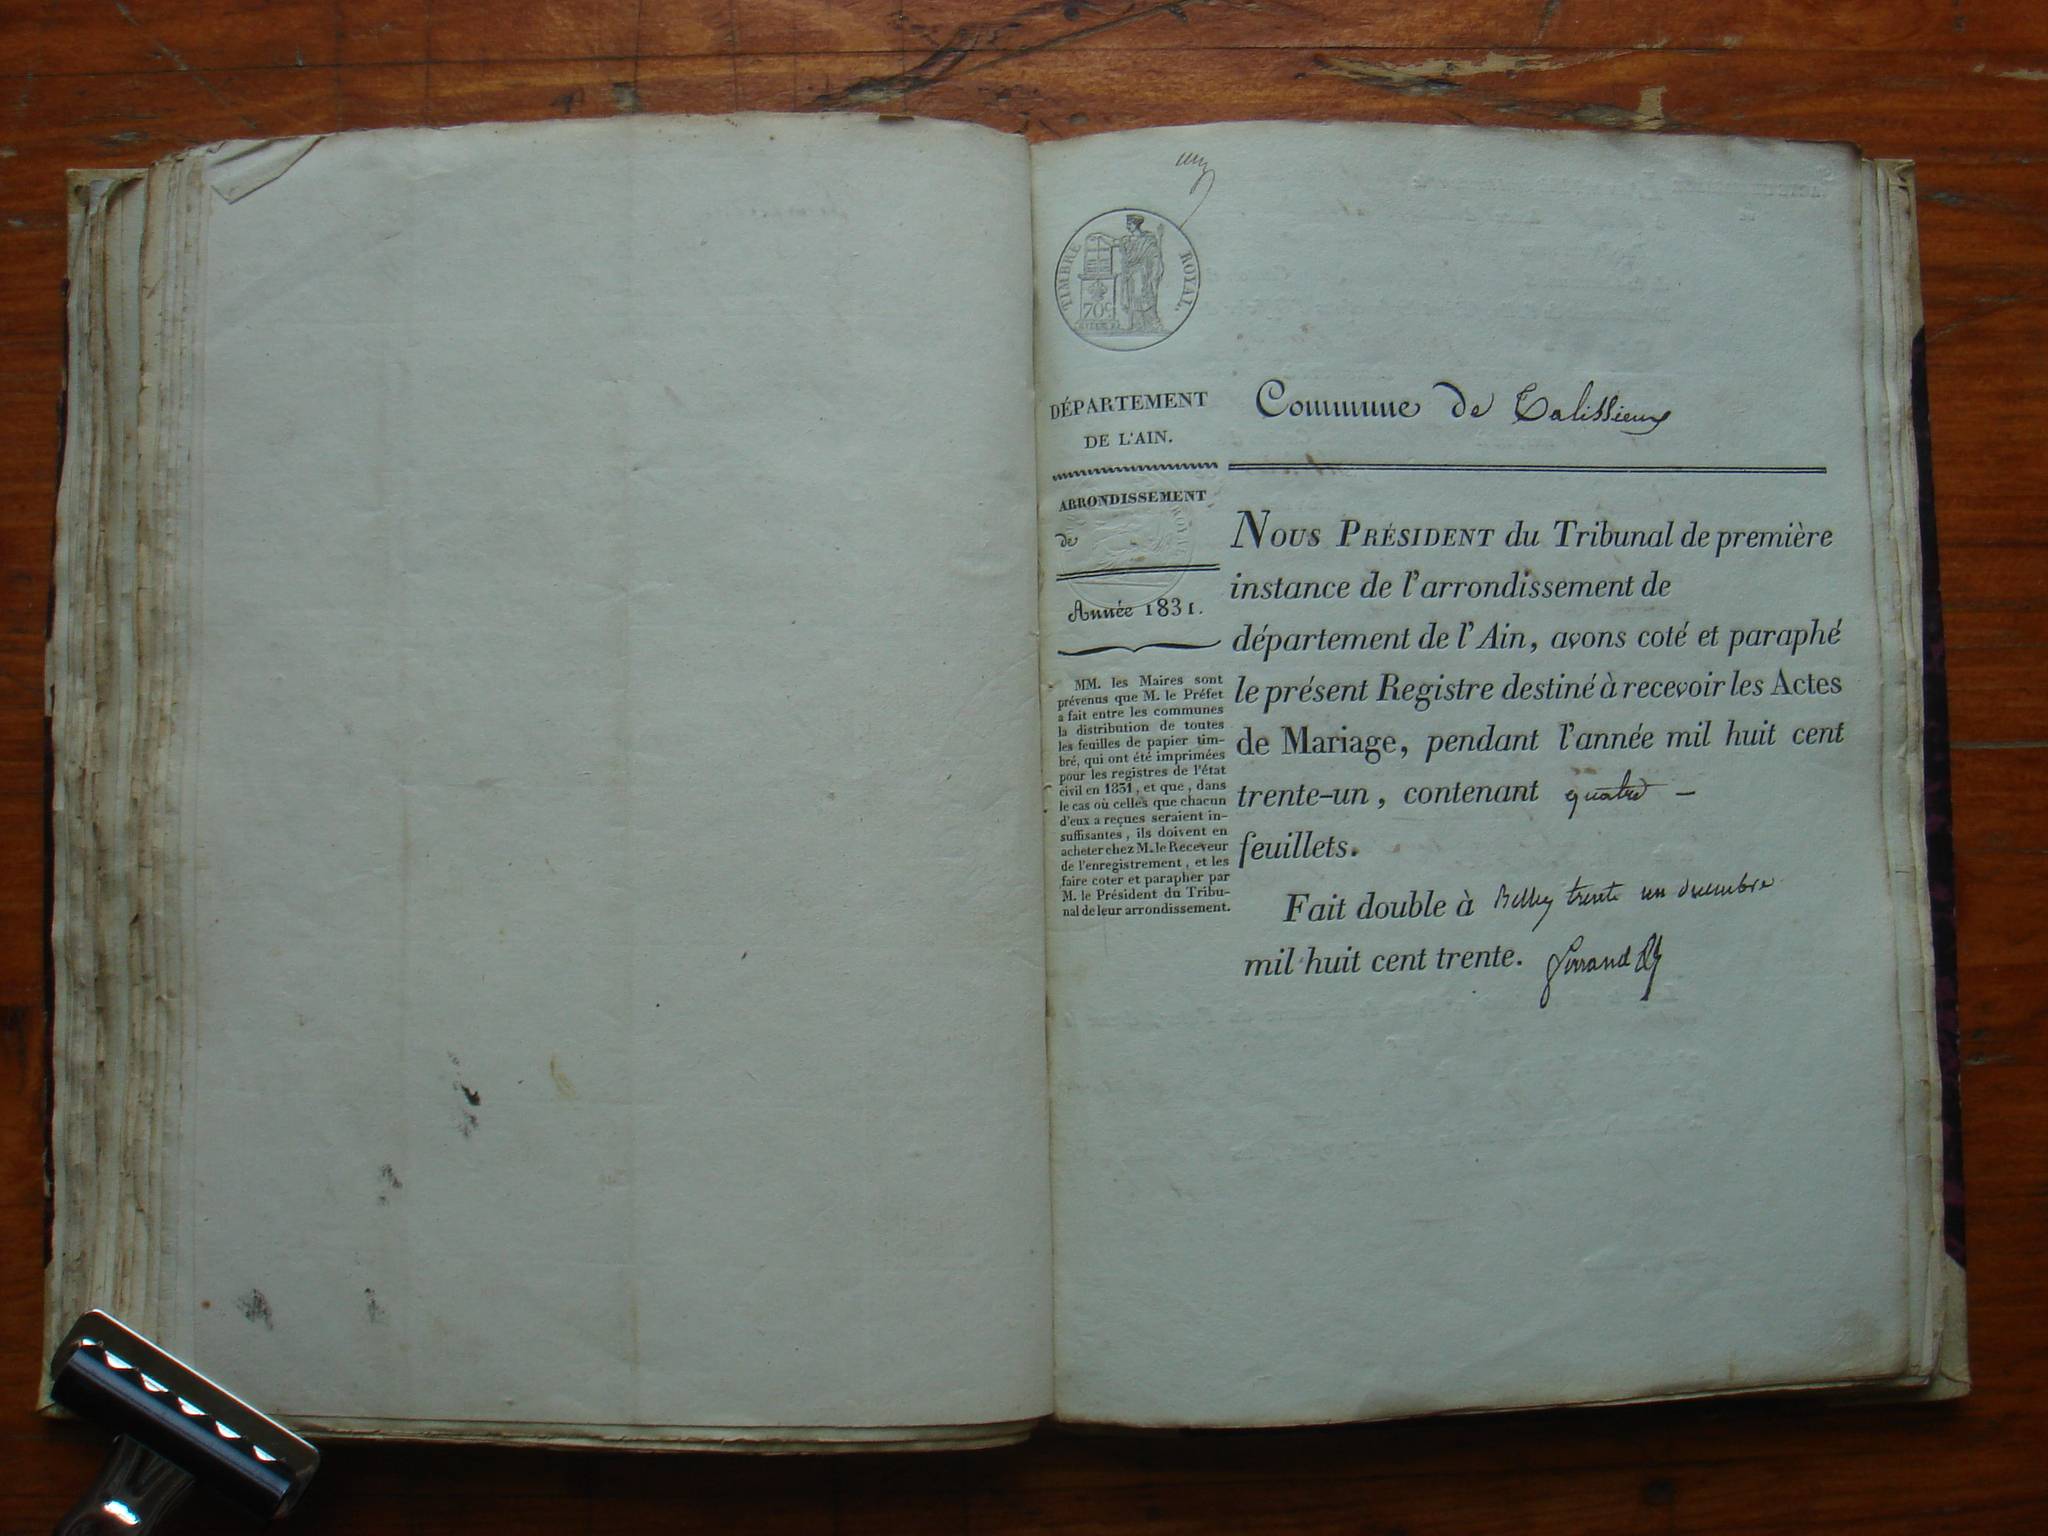 un
TIMBRE ROYAL.
70c
DÉPARTEMENT
DE L'AIN.
ARRONDISSEMENT
de
Année 1831.
MM. les Maires sont
prévenus que M. le Préfet
a fait entre les communes
la distribution de toutes
les feuilles de papier tim-
bré, qui ont été imprimées
pour les registres de l'état
civil en 1831, et que, dans
le cas où celles que chacun
d'eux a reçues seraient in-
suffisantes, ils doivent en
acheter chez M. le Receveur
de l'enregistrement, et les
faire coter et parapher par
M. le Président du Tribu-
nal de leur arrondissement.
Commune de Talissieux
NOUS PRÉSIDENT du Tribunal de première
instance de l'arrondissement de
département de l'Ain, avons coté et paraphé
le présent Registre destiné à recevoir les Actes
de Mariage, pendant l'année mil huit cent
trente-un, contenant quatre —
feuillets.
Fait double à Belley trente un decembre
mil huit cent trente.